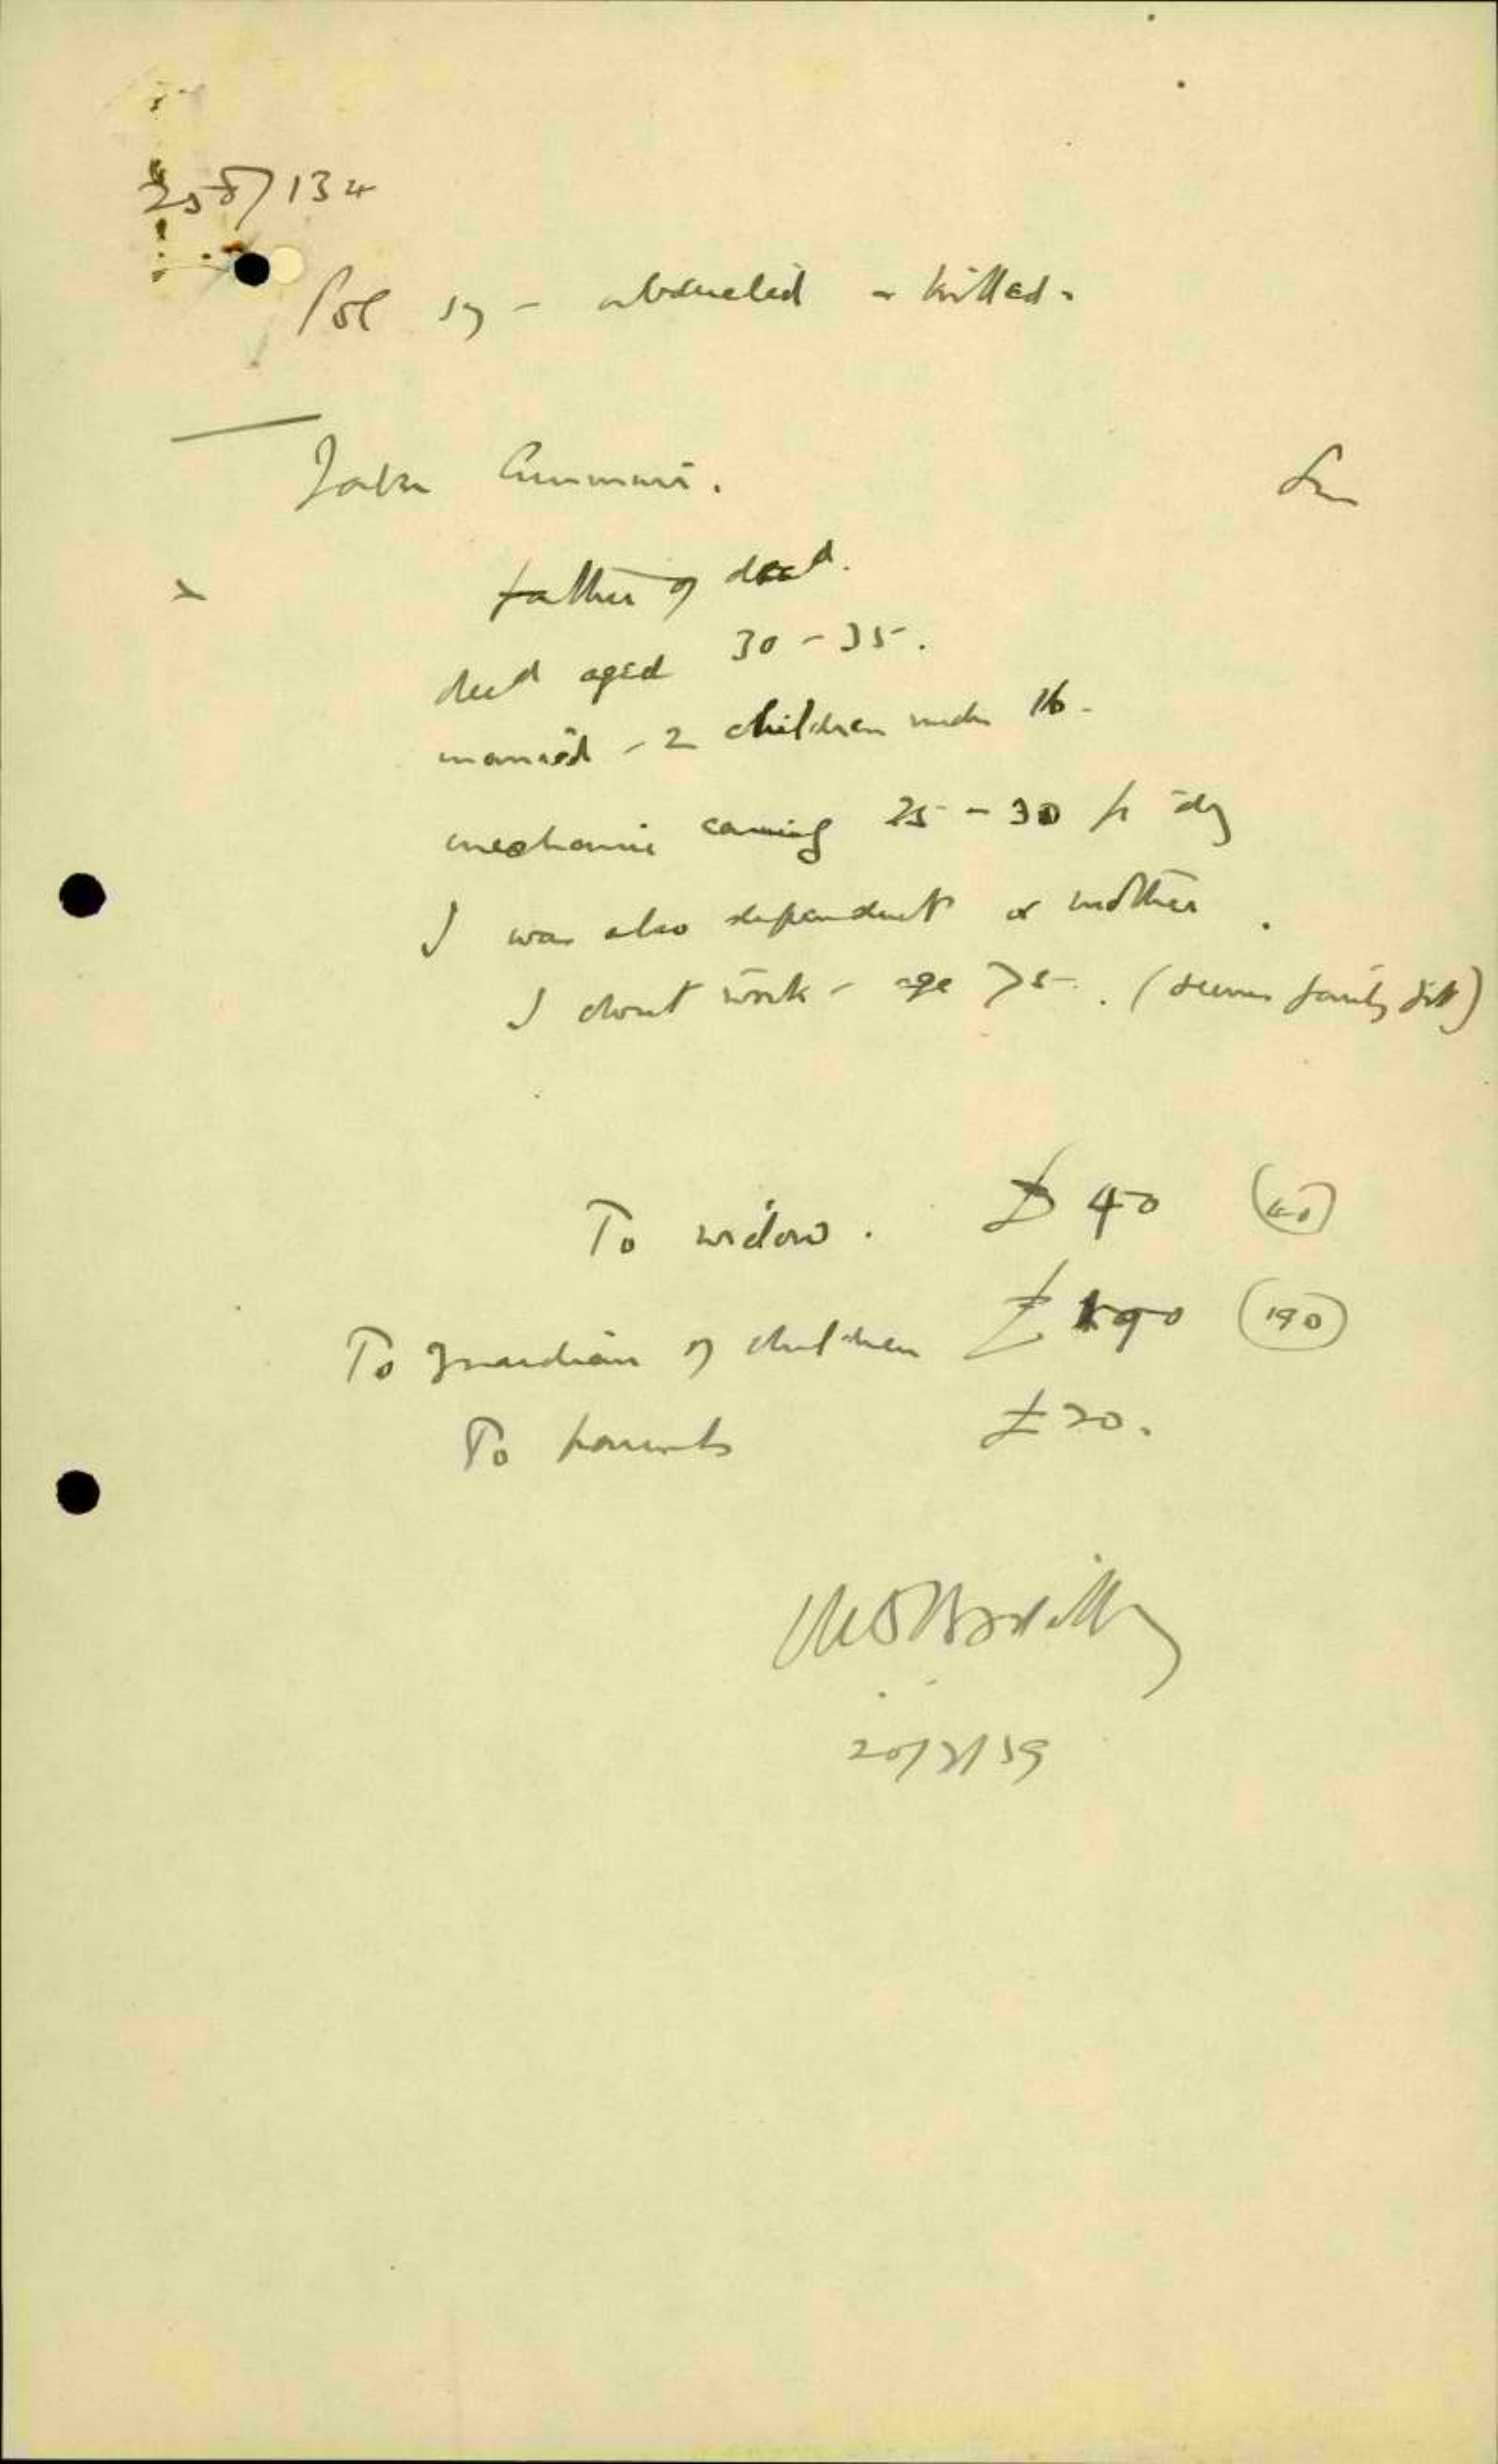 258/134
Pol 57 - abducted - killed.
father of decd.
decd aged 30-35.
married - 2 children under 16.
mechanic earning 25-30 p day
I was also dependent & mother.
I dont work - age 75. (seems fairly fit)
To widow. £ 40 (40)
To guardian of children £ 190 (190)
To parents £20.